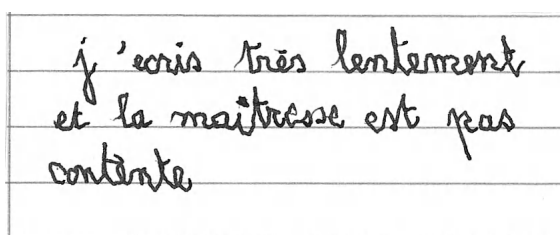 j'ecris très lentement
et la maitresse est pas
contente